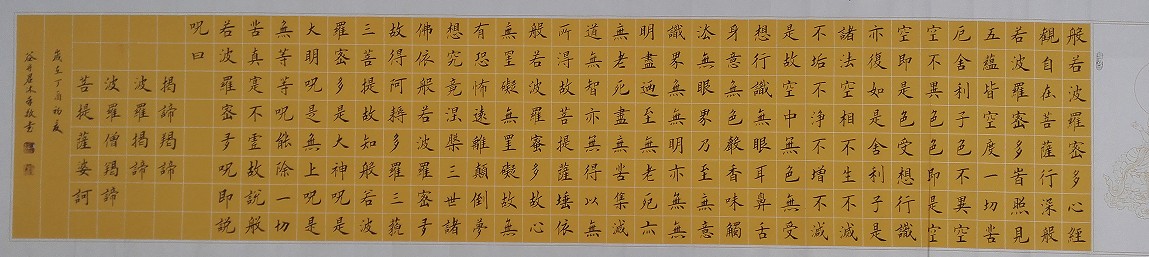 般若波羅密多心經
觀自在菩薩行深般
若波羅密多時照見
五蘊皆空度一切苦
厄舍利子色不異空
空不異色色即是空
空即是色受想行識
亦復如是舍利子是
諸法空相不生不滅
不垢不淨不增不減
是故空中無色無受
想行識無眼耳鼻舌
身意無色聲香味觸
法無眼界乃至無意
識界無無明亦無無
明盡迺至無老死亦
無老死盡無苦集滅
道無智亦無得以無
所得故菩提薩埵依
般若波羅蜜多故心
無罣礙無罣礙故無
有恐怖遠離顛倒夢
想究竟涅槃三世諸
佛依般若波羅密多
故得阿耨多羅三藐
三菩提故知般若波
羅密多是大神呪是
大明呪是無上呪是
無等等呪能除一切
苦真寔不虛故說般
若波羅密多呪即說
呪曰
揭諦羯諦
波羅揭諦
波羅僧羯諦
菩提薩婆訶
歲在丁酉初夏
沐手敬書